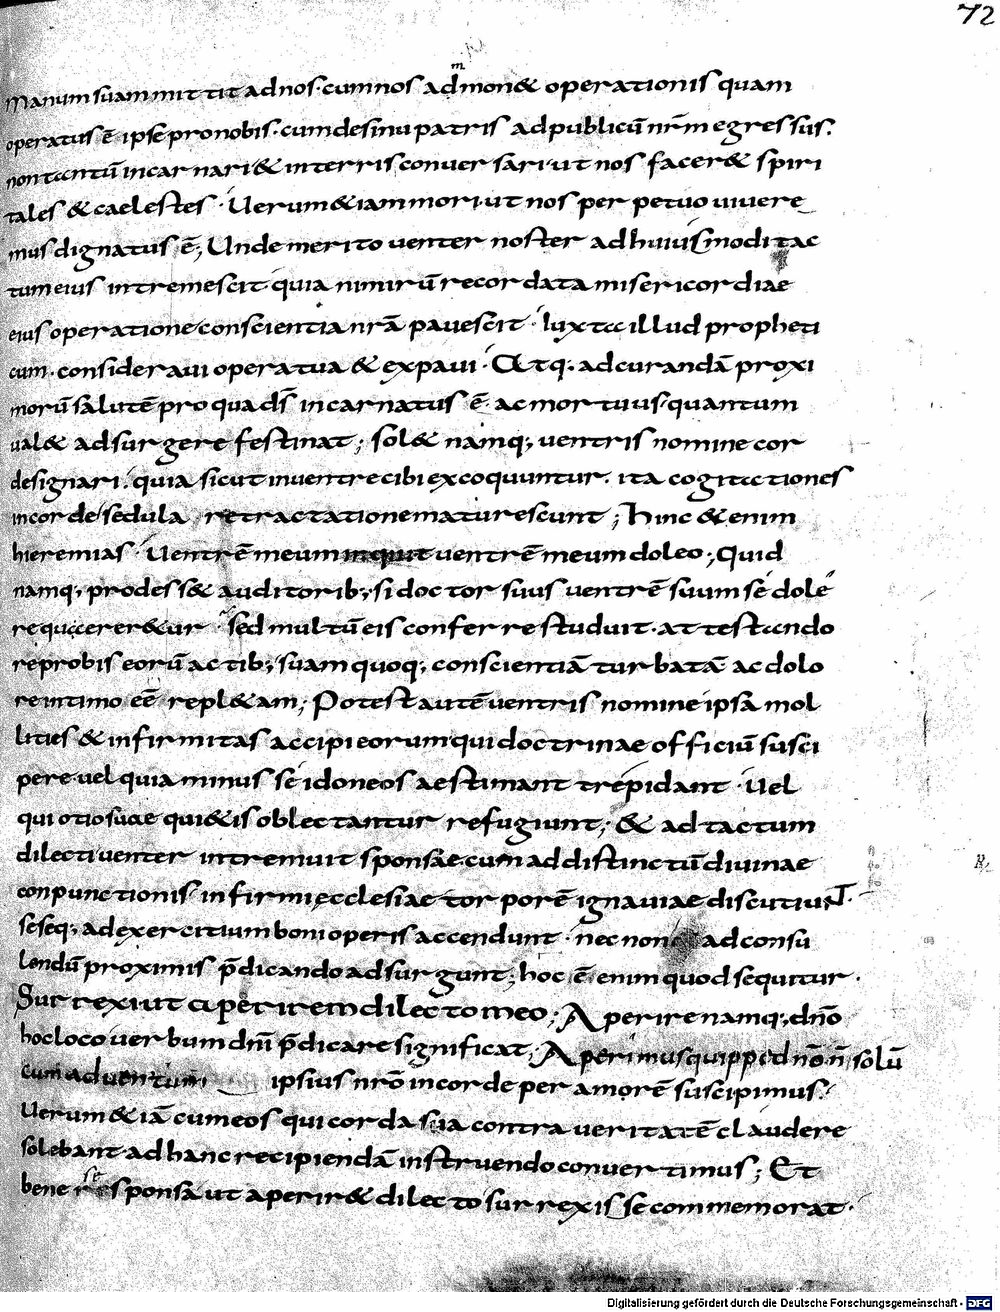 72
manum suam mittit ad nos · cum nos admon& operationis quam
operatus ē ipse pro nobis · cum de sinu patris ad publicū nr̄m egressus ·
non tantū incarnari & in terris conversari ut nos facer& spiri
tales & caelestes · Uerum & iam mori ut nos perpetuo vivere
mus dignatus ē; Unde merito venter noster ad huiuscmodi tac
tum eius intremescit quia nimirū recordata misericordiae
eius operatione conscientia nr̄a pavescit · Iuxta illud propheti
cum · consideravi opera tua & expavi · Atq; ad curandā proxi
morū salutē pro qua dš incarnatus ē · ac mortuus quantum
val& adsurgere festinat; sol& namq; ventris nomine cor
designari · quia sicut in ventre cibi excoquuntur · ita cogitationes
in corde sedula retractatione maturescunt; Hinc & enim
hieremias · Uentrē meum inquit ventrē meum doleo; Quid
namq; prodess& auditorib; si doctor suus ventrē suum sé dolé
re quaerer&ur · sed multū eis conferre studuit · attestando
reprobis eorū actib; suam quoq; conscientiā turbatā ac dolo
re intimo eē repl&am; Potest autē ventris nomine ipsa mol
lities & infirmitas accipi eorum qui doctrinae officiū susci
pere vel quia minus sé idoneos aestimant trepidant · Uel
qui otio suae qui&is oblectantur refugiunt; & ad tactum
dilecti venter intremuit sponsae cum ad distinctū divinae
conpunctionis infirmi ecclesiae torporē ignaviae discutiunt ·
seseq; ad exercitium boni operis accendunt · nec non ad consu
lendū proximis p̄dicando adsurgunt; hoc ē enim quod sequitur ·
Surrexi ut aperirem dilecto meo; Aperire namq; dn̄o
hoc loco verbum dn̄i p̄dicare significat; Aperimus quippe dn̄o n̄ solū
cum adventum ipsius nr̄o in corde per amorē suscipimus ·
Uerum & iā cum eos qui corda sua contra veritatē claudere
solebant ad hanc recipiendā instruendo convertimus; Et
bene sé sponsa ut aperir& dilecto surrexisse commemorat ·
Digitalisierung gefördert durch die Deutsche Forschungsgemeinschaft - DFG